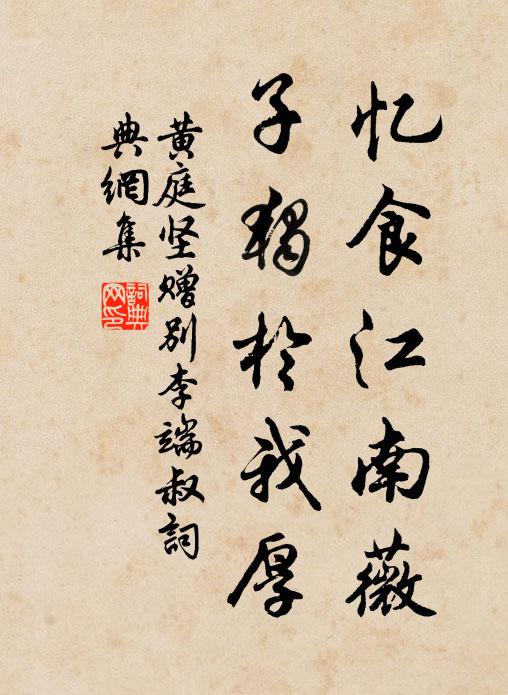 忆食江南薇
子独於我厚
黄庭坚赠别李端叔词
典網集
詞典网印